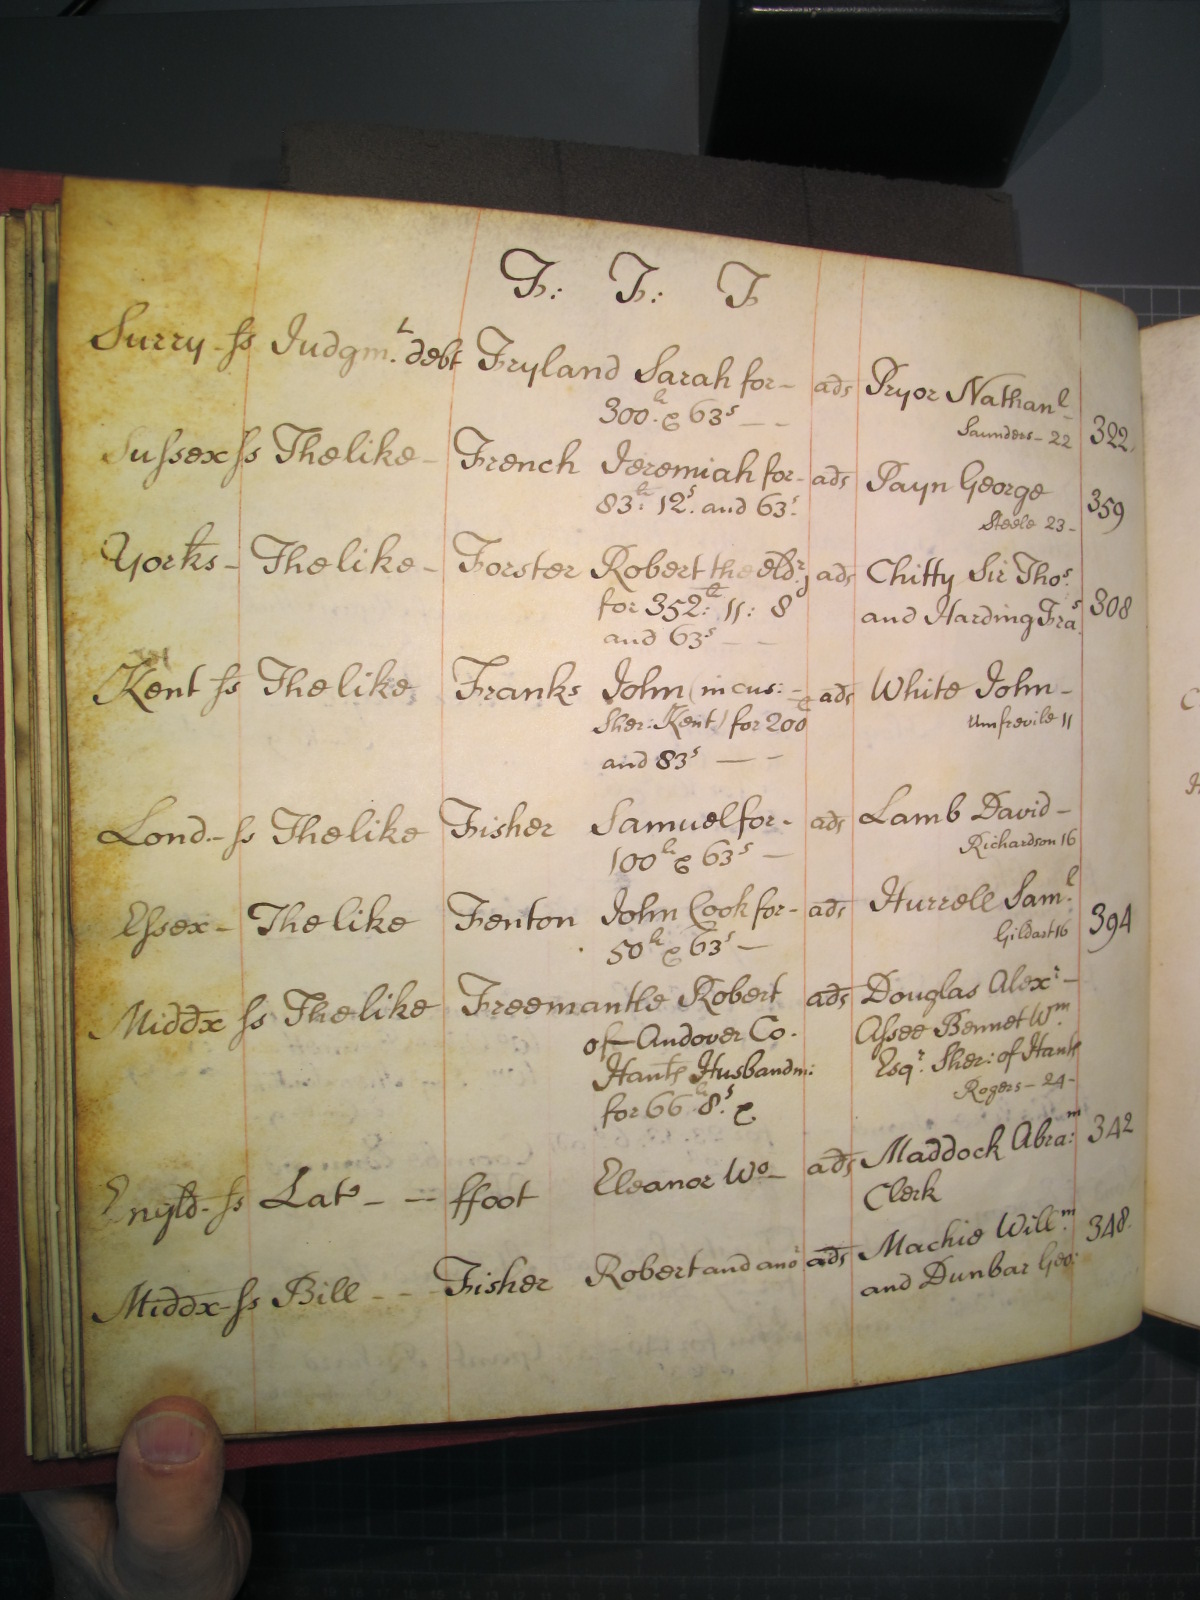 F: F: F
Surry ss Judgm.t debt Fryland Sarah for - ads Pryor Nathan.l
300.li & 63s - - Saunders - 22 322
Sussex ss The like - French Jeremiah for - ads Payn George
83li: 12s. and 63s. Steele 23 - 359
Yorks - The like - Forster Robert the eld.r ads Chitty Sir Tho.s
for 352li: 11: 8 and Harding Fra.s 308
and 63s - -
Kent ss The like Franks John (in cus: - ads White John -
Sher: Kent) for 200li Umfrevile 11
and 83s - -
Lond. - ss The like Fisher Samuel for - ads Lamb David -
100li & 63s - Richardson 16
Essex - The like Fenton John Cook for - ads Hurrell Sam.l
50li & 63s - Gildart 16 394
Middx ss The like Freemantle Robert ads Douglas Alex.r -
of Andover Co. Assee Bennet W.m
Hants Husbandm: Esq.r Sher: of Hants
for 66li 8s. & Rogers - 24 -
Engld - ss Lat. - - ffoot Eleanor Wo - ads Maddock Abra:m 342
Clerk
Middx - ss Bill - - Fisher Robert and ano.r ads Mackie Will.m 348.
and Dunbar Geo: